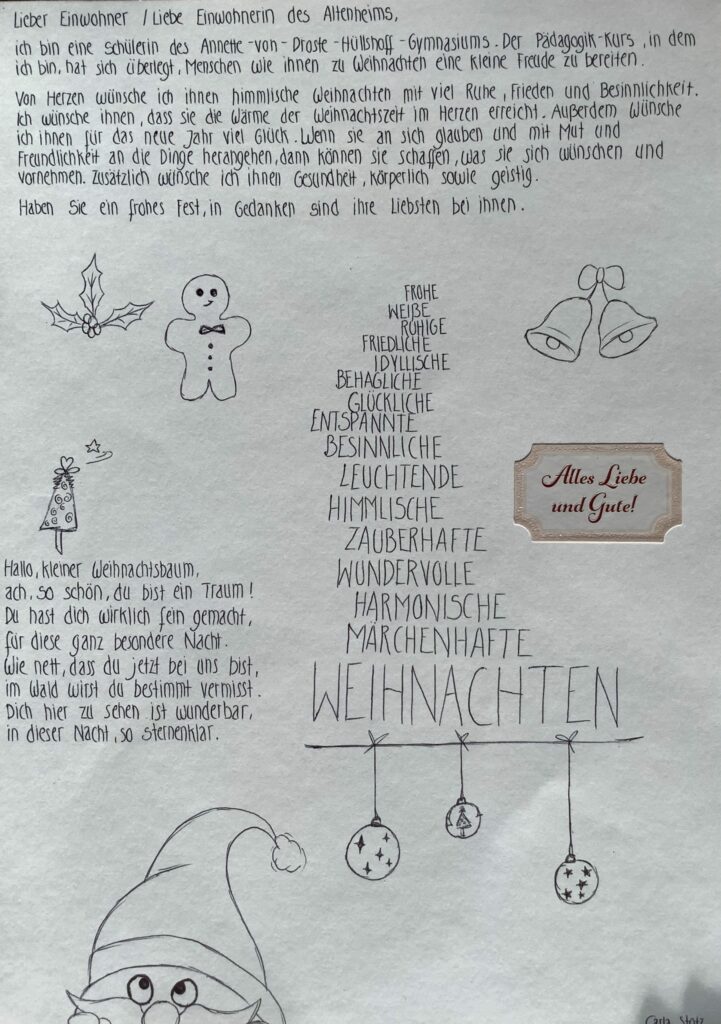 Lieber Einwohner / Liebe Einwohnerin des Altenheims,
ich bin eine Schülerin des Annette-von-Droste-Hüllshoff-Gymnasiums. Der Pädagogik-Kurs, in dem
ich bin, hat sich überlegt, Menschen wie ihnen zu Weihnachten eine kleine Freude zu bereiten.
Von Herzen wünsche ich ihnen himmlische Weihnachten mit viel Ruhe, Frieden und Besinnlichkeit.
Ich wünsche ihnen, dass sie die Wärme der Weihnachtszeit im Herzen erreicht. Außerdem wünsche
ich ihnen für das neue Jahr viel Glück. Wenn sie an sich glauben und mit Mut und
Freundlichkeit an die Dinge herangehen, dann können sie schaffen, was sie sich wünschen und
vornehmen. Zusätzlich wünsche ich ihnen Gesundheit, körperlich sowie geistig.
Haben Sie ein frohes Fest, in Gedanken sind ihre Liebsten bei ihnen.
FROHE
WEIßE
RUHIGE
FRIEDLICHE
IDYLLISCHE
BEHAGLICHE
GLÜCKLICHE
ENTSPANNTE
BESINNLICHE
LEUCHTENDE
HIMMLISCHE
ZAUBERHAFTE
WUNDERVOLLE
HARMONISCHE
MÄRCHENHAFTE
WEIHNACHTEN
Alles Liebe
und Gute!
Hallo, kleiner Weihnachtsbaum,
ach, so schön, du bist ein Traum!
Du hast dich wirklich fein gemacht,
für diese ganz besondere Nacht.
Wie nett, dass du jetzt bei uns bist,
im Wald wirst du bestimmt vermisst.
Dich hier zu sehen ist wunderbar,
in dieser Nacht, so sternenklar.
Carla Stotz